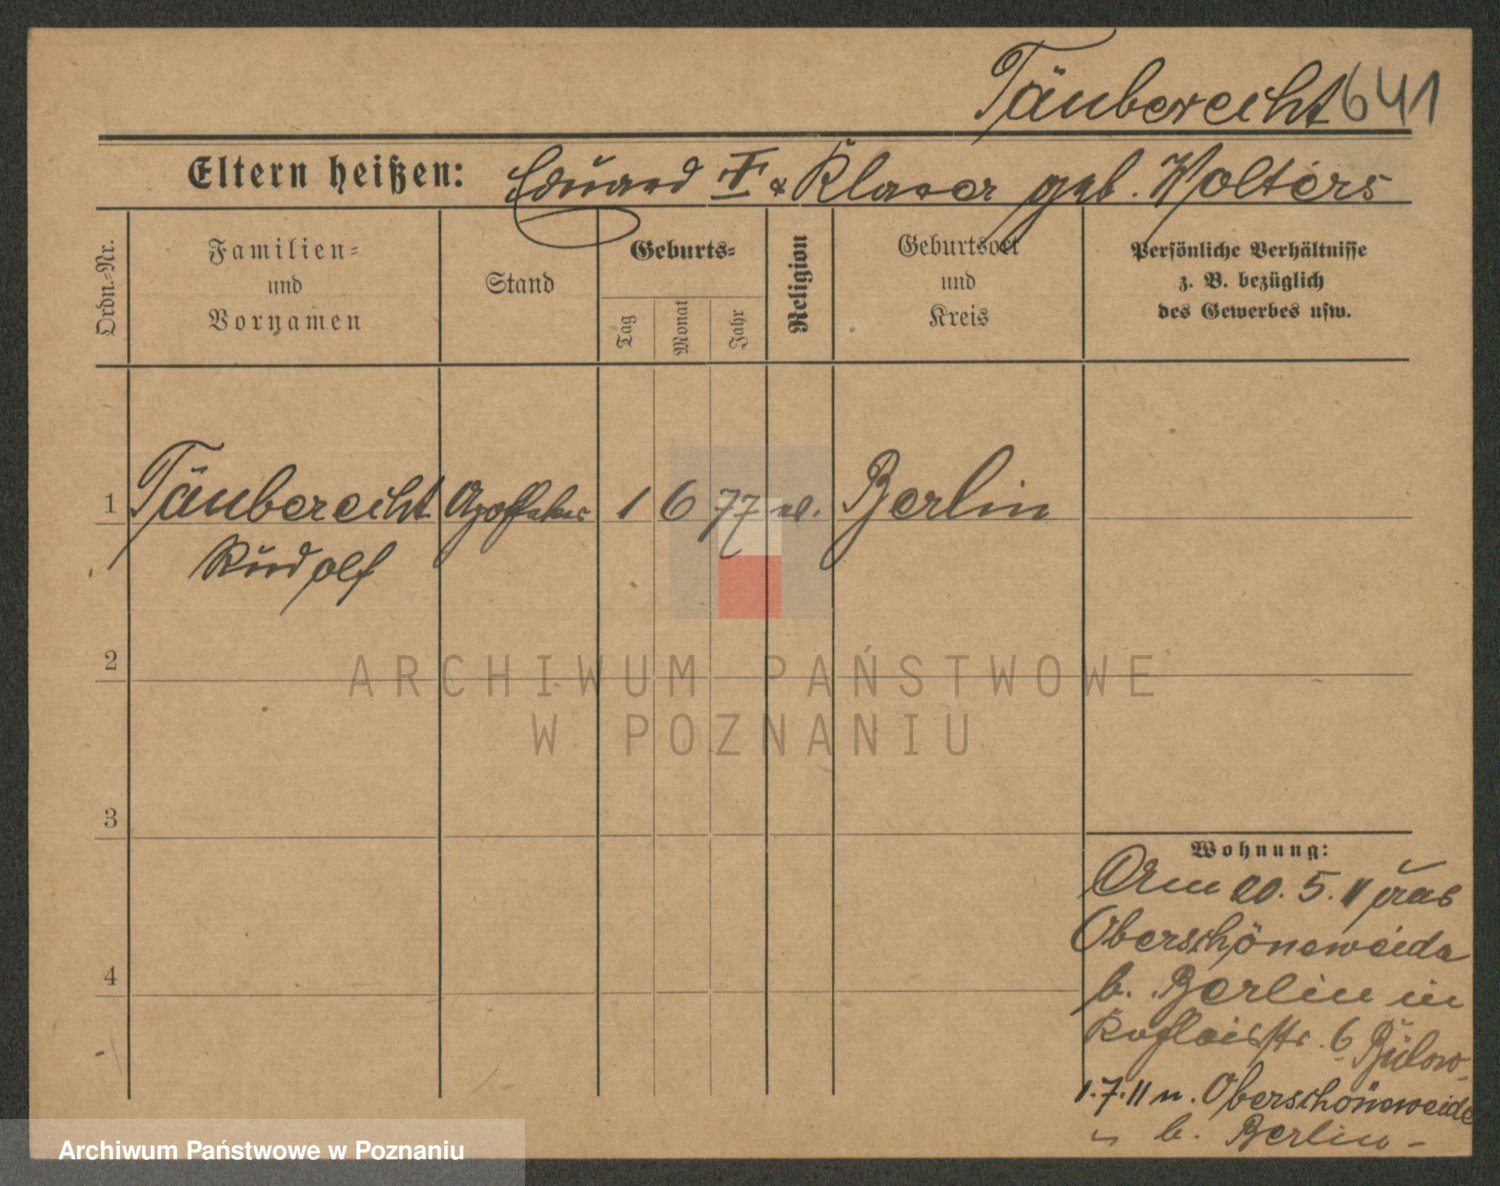 Täuberecht 641
Eltern heißen: Eduard & Klara geb. Wolters
Ordn.-Nr.
Familien-
und
Vornamen
Stand
Geburts-
Tag
Monat
Jahr
Religion
Geburtsort
und
Kreis
Persönliche Verhältnisse
z. B. bezüglich
des Gewerbes usw.
1 Täuberecht Apotheker 1 6 77 Berlin
Rudolf
2
ARCHIWUM PAŃSTWOWE
W POZNANIU
3
4
Wohnung:
Am 20. 5. 11
Oberschöneweide
b. Berlin in
6 Bülow
1. 7. 11 n. Oberschöneweide
b. Berlin -
Archiwum Państwowe w Poznaniu